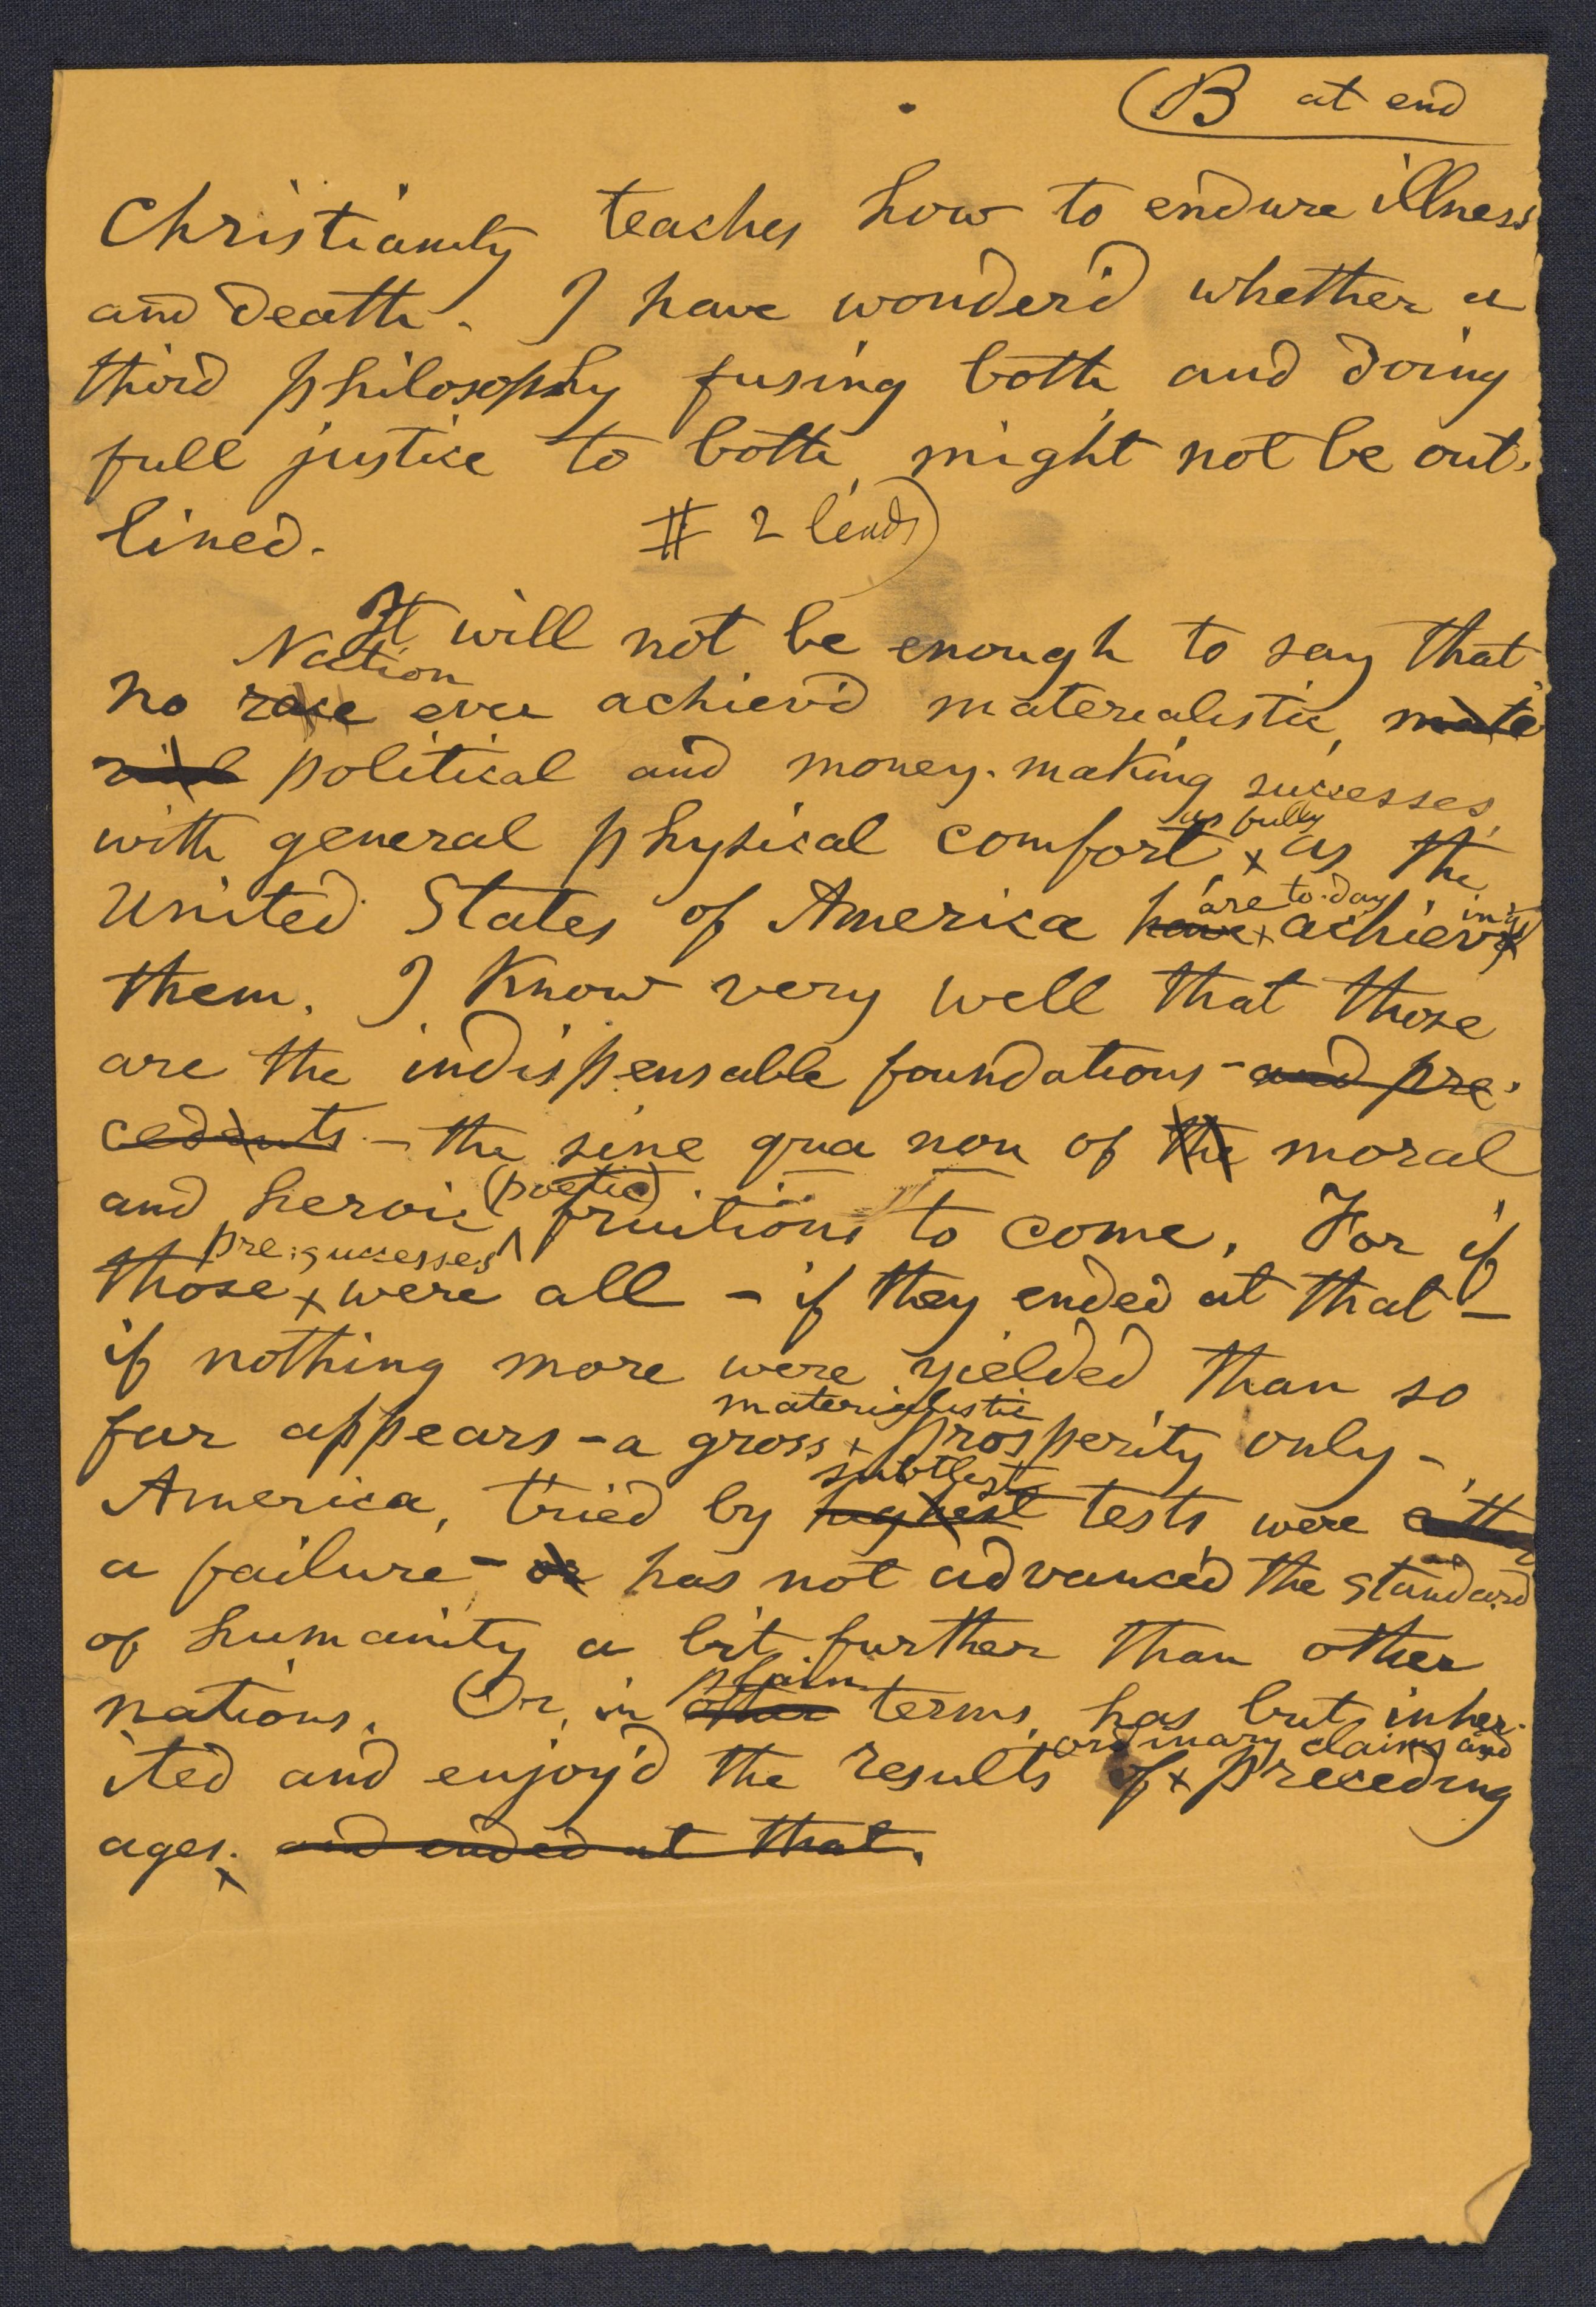 B at end
Christianity teaches how to endure illness
and death. I have wonder'd whether a
third philosophy fusing both, and doing
full justice to both, might not be out-
lined.
# 2 leads
It will not be enough to say that
Nation
no race ever achiev'd materialistic, mate
rial political and money-making successes,
as fully
with general physical comfort, x as the
are to-day ing
United States of America have x achiev
them. I know very well that those
are the indispensable foundations - and pre-
cedents - the sine qua non of the moral
(poetic)
and heroic ^ fruitions to come. For if
pre-successes
those x were all - if they ended at that -
if nothing more were yielded than so
materialistic
far appears - a gross x prosperity only -
subtlest
America, tried by highest tests were either
a failure - or has not advanced the standard
of humanity a bit further than other
plain
nations. Or, in other terms, has but inher-
ordinary claims and
ited and enjoy'd the results of x preceding
ages. x and ended at that.